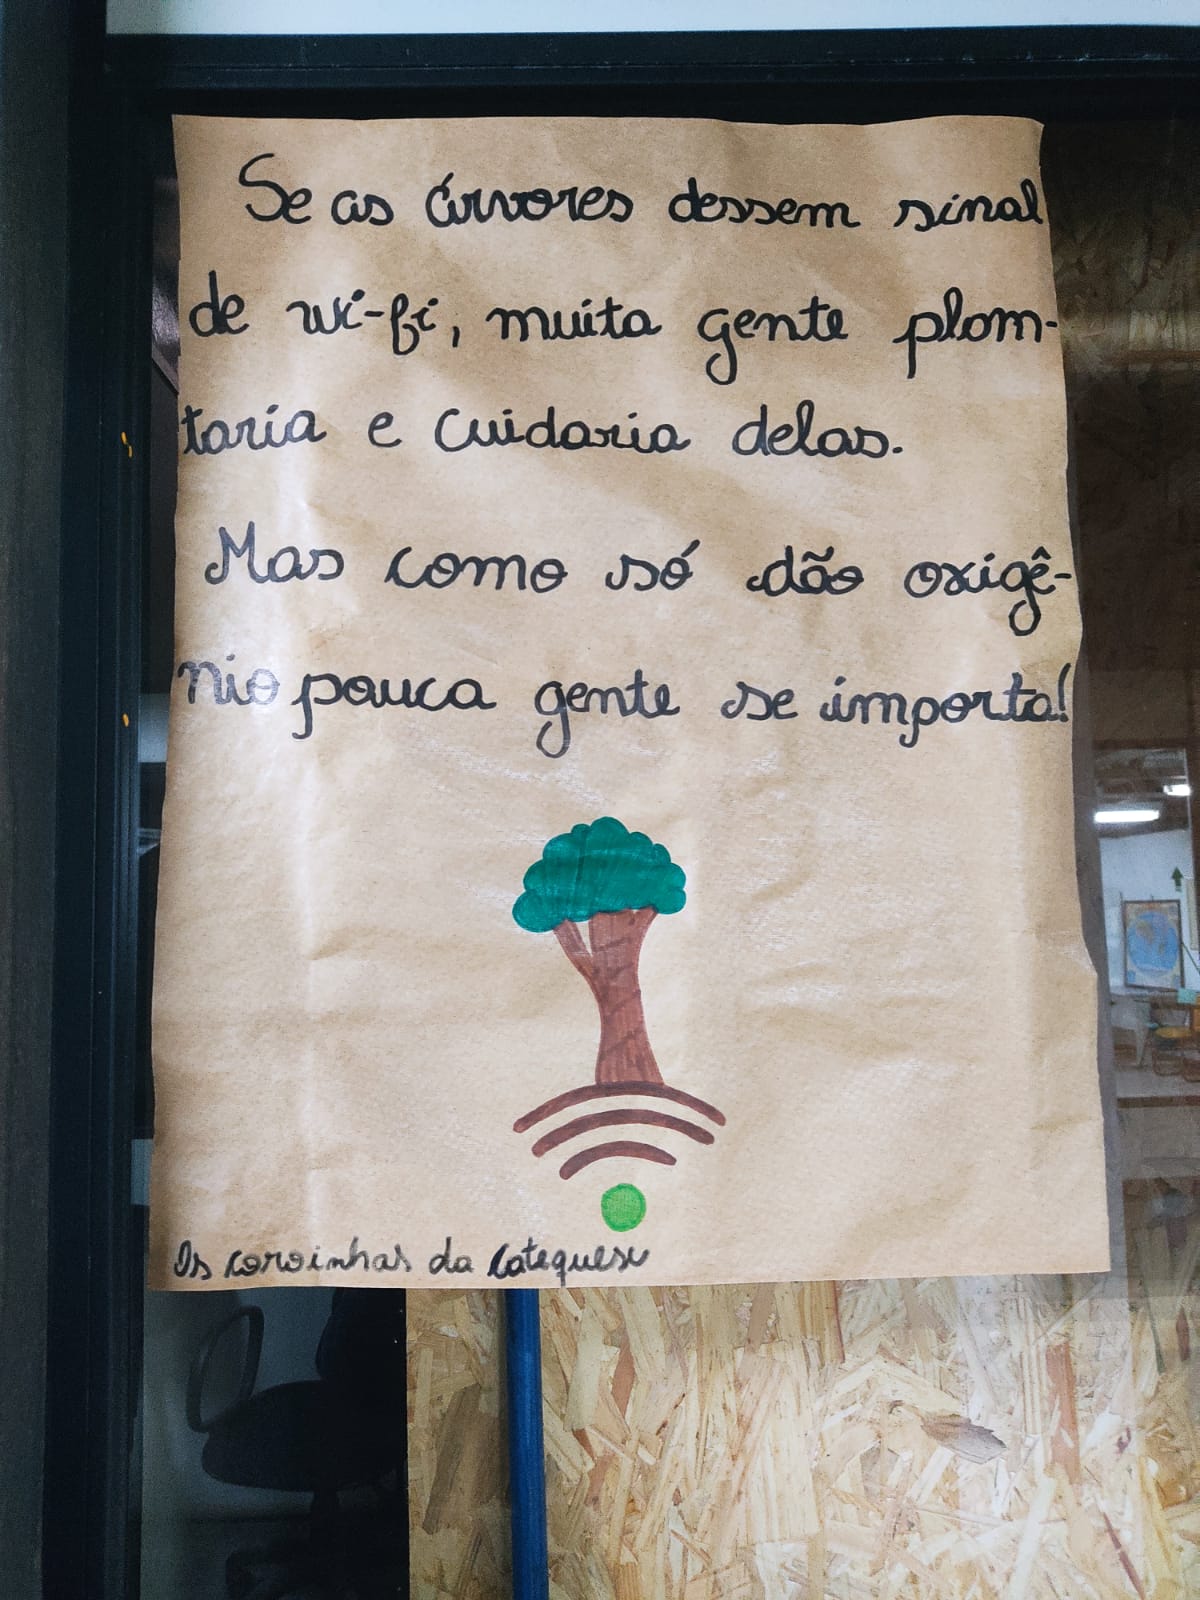 Se as árvores dessem sinal
de wi-fi, muita gente plan-
taria e cuidaria delas.
Mas como só dão oxigê-
nio pouca gente se importa!
Os coroinhas da Catequese